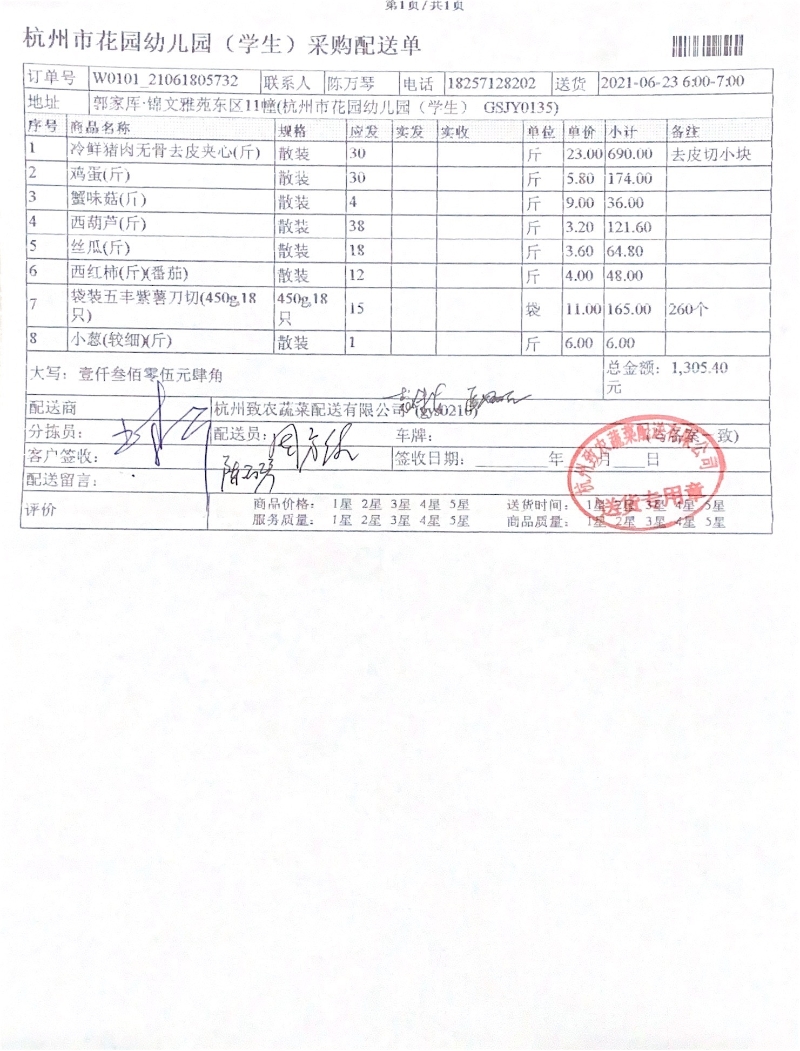 第1页/共1页
杭州市花园幼儿园（学生）采购配送单
订单号 W0101_21061805732 联系人 陈万琴 电话 18257128202 送货 2021-06-23 6:00-7:00
地址 郭家厍·锦文雅苑东区11幢(杭州市花园幼儿园（学生） GSJY0135)
序号 商品名称 规格 应发 实发 实收 单位 单价 小计 备注
1 冷鲜猪肉无骨去皮夹心(斤) 散装 30 斤 23.00 690.00 去皮切小块
2 鸡蛋(斤) 散装 30 斤 5.80 174.00
3 蟹味菇(斤) 散装 4 斤 9.00 36.00
4 西葫芦(斤) 散装 38 斤 3.20 121.60
5 丝瓜(斤) 散装 18 斤 3.60 64.80
6 西红柿(斤)(番茄) 散装 12 斤 4.00 48.00
7 袋装五丰紫薯刀切(450g,18只) 450g,18只 15 袋 11.00 165.00 260个
8 小葱(较细)(斤) 散装 1 斤 6.00 6.00
大写：壹仟叁佰零伍元肆角 总金额：1,305.40元
配送商 杭州致农蔬菜配送有限公司
分拣员： 配送员： 车牌： 一致)
客户签收： 陈万琴 签收日期： 年 月 日
配送留言：
评价 商品价格： 1星 2星 3星 4星 5星 送货时间： 1星 2星 3星 4星 5星
服务质量： 1星 2星 3星 4星 5星 商品质量： 1星 2星 3星 4星 5星
杭州致农蔬菜配送有限公司
送货专用章